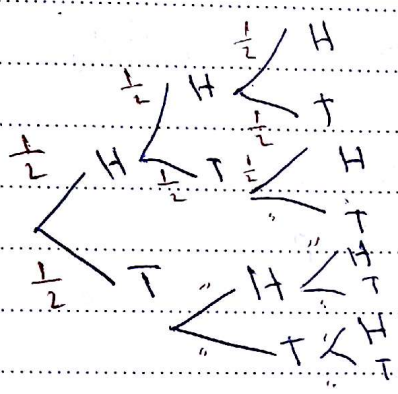 1/2 H
1/2 H
1/2 T
1/2 H 1/2 T 1/2 H
" T
1/2 T " H " H
" T
" T " H
" T